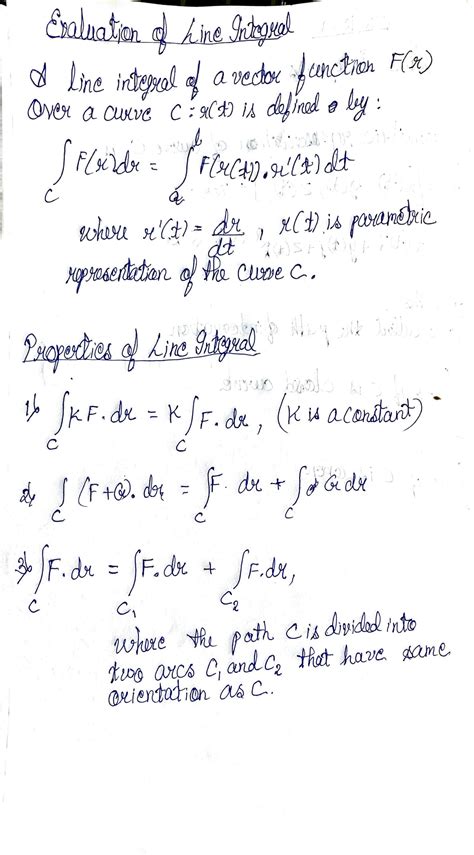 Evaluation of Line Integral
A line integral of a vector function F(r)
Over a curve C : r(t) is defined by :
∫_C F(r)dr = ∫_a^b F(r(t)) . r'(t) dt
where r'(t) = dr/dt , r(t) is parametric
representation of the curve C.
Properties of Line Integral
1) ∫_C K F. dr = K ∫_C F. dr, (K is a constant)
2) ∫_C (F+G). dr = ∫_C F. dr + ∫_C G. dr
3) ∫_C F. dr = ∫_C₁ F. dr + ∫_C₂ F. dr,
where the path C is divided into
two arcs C₁ and C₂ that have same
orientation as C.